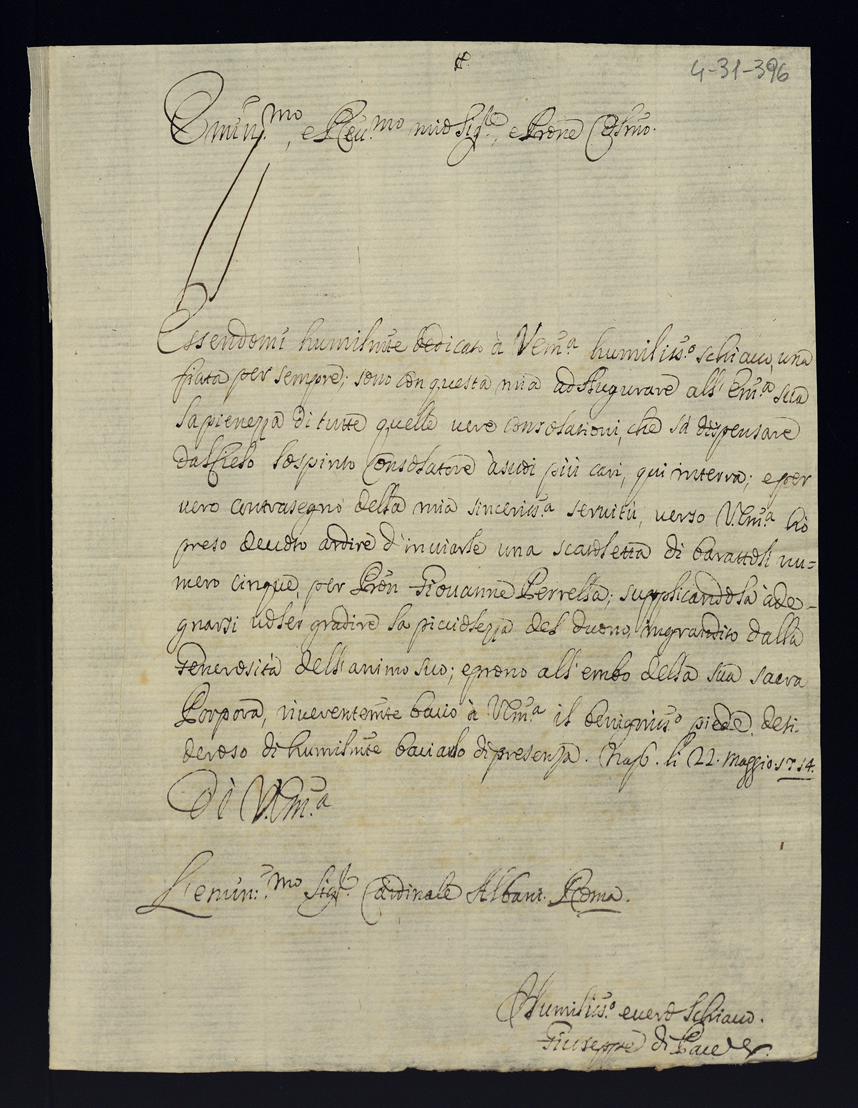 4-31-396
Emin.mo, e Reu.mo mio Sig.re, e Prone Colmo.
Essendomi humilmte dedicato à V.Em.a humilis.o schiauo, una
fiata per sempre; sono con questa mia ad Augurare all' Em.a sua
la pienezza di tutte quelle vere consolationi, che sà dispensare
dal Cielo lo spirito Consolatore à suoi più cari, qui in terra; e per
vero contrasegno della mia sinceriss.a seruitù, verso V.Em.a hò
preso deuoto ardire d'inuiarle una scatoletta di barattoli nu=
mero cinque, per Pron Giouanne Perrella; supplicandola à de=
gnarsi uoler gradire la picciolezza del duono, ingrandito dalla
Generosità dell'animo suo; e prono all'embo della sua sacra
Porpora, riuerentemte bacio à V.Em.a il benignis.o piede, desi=
deroso di humilmte baciarlo di presenza. Nap. li 22. Maggio 1714.
Di V.Em.a
L'emin:mo Sig.r Cardinale Albani. Roma.
Humilis.o e vero Schiauo.
Giuseppe di Pace